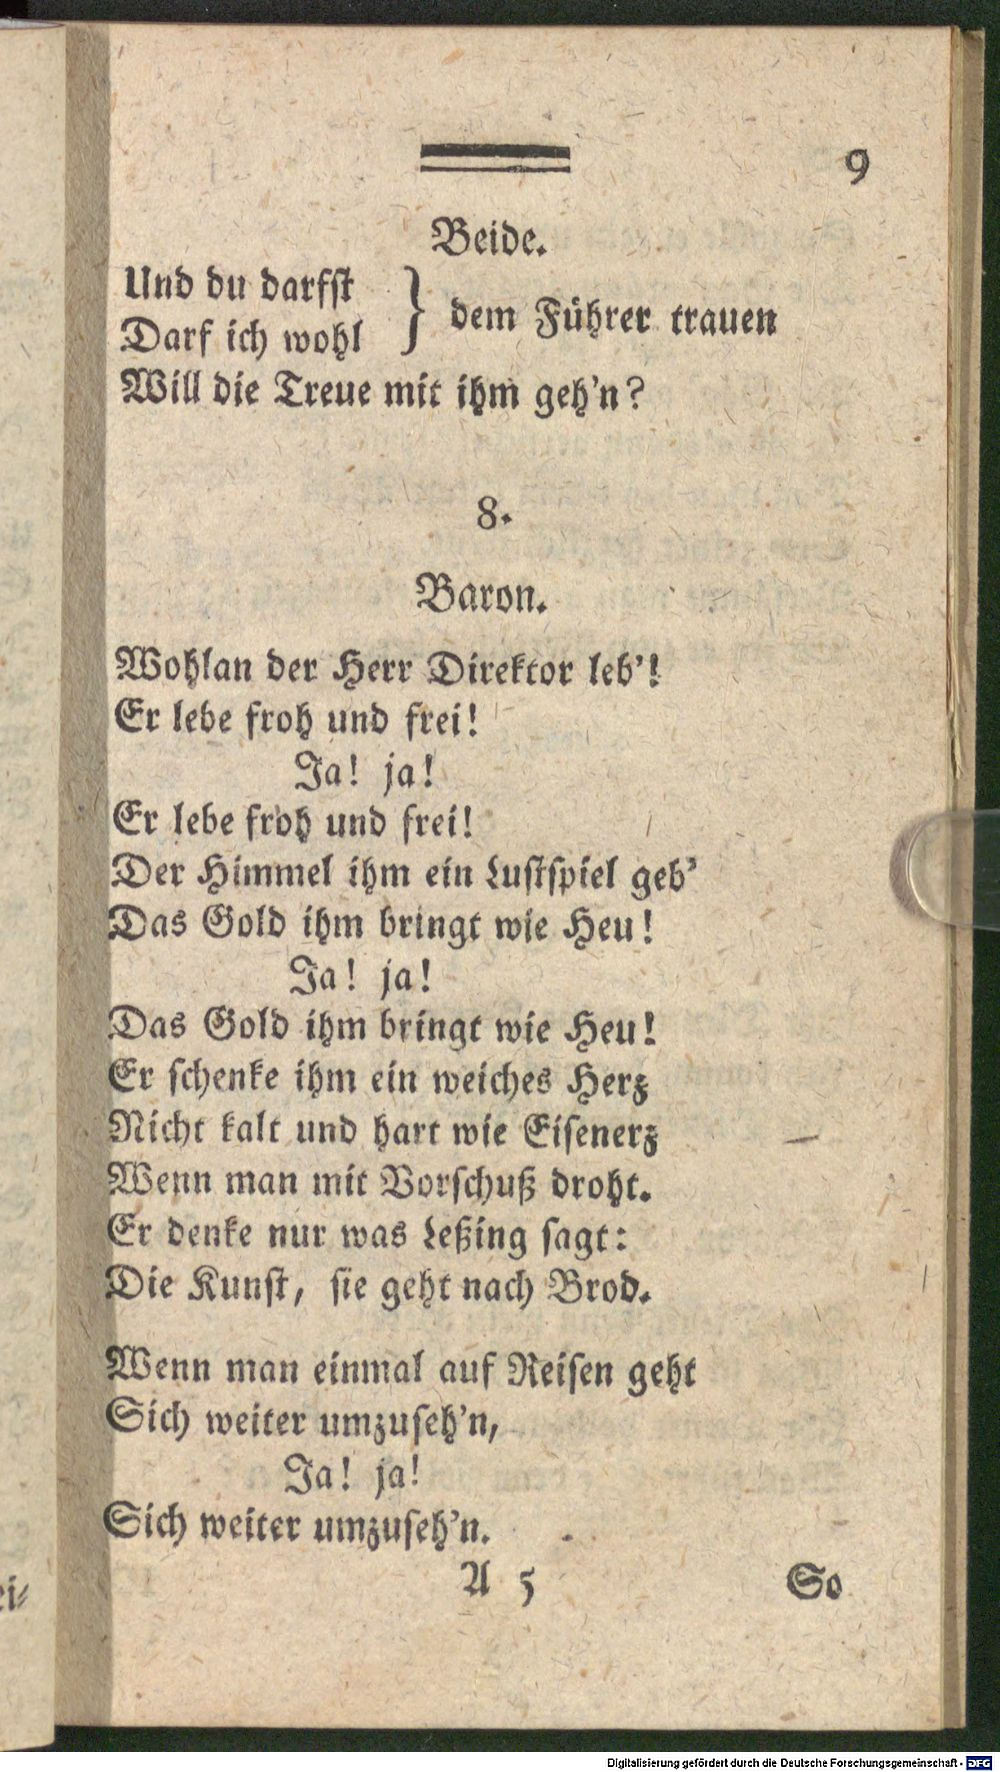 9
Beide.
Und du darfst } dem Führer trauen
Darf ich wohl
Will die Treue mit ihm geh'n?
8.
Baron.
Wohlan der Herr Direktor leb'!
Er lebe froh und frei!
Ja! ja!
Er lebe froh und frei!
Der Himmel ihm ein Lustspiel geb'
Das Gold ihm bringt wie Heu!
Ja! ja!
Das Gold ihm bringt wie Heu!
Er schenke ihm ein weiches Herz
Nicht kalt und hart wie Eisenerz
Wenn man mit Vorschuß droht.
Er denke nur was Leßing sagt:
Die Kunst, sie geht nach Brod.
Wenn man einmal auf Reisen geht
Sich weiter umzuseh'n,
Ja! ja!
Sich weiter umzuseh'n.
A 5 So
Digitalisierung gefördert durch die Deutsche Forschungsgemeinschaft - DFG